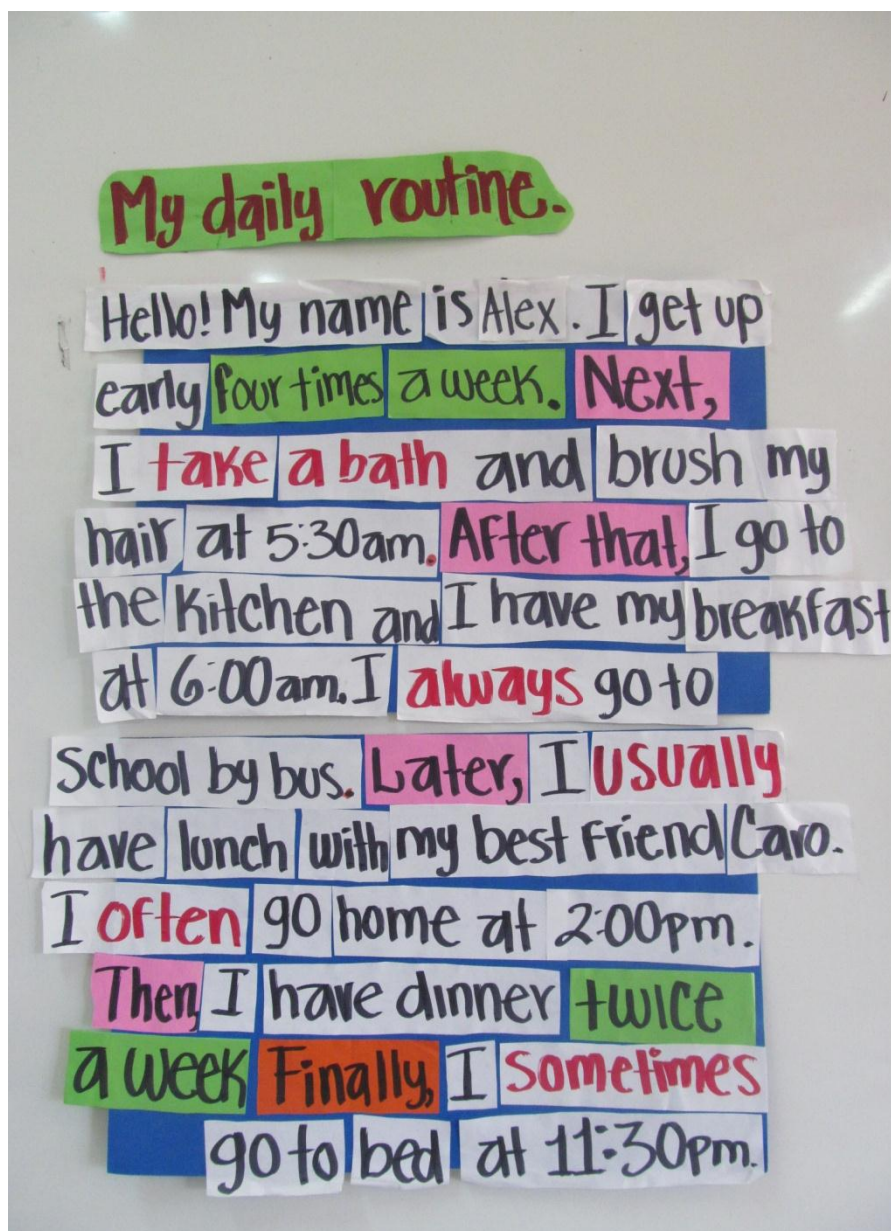 My daily routine.
Hello! My name is Alex. I get up
early four times a week. Next,
I take a bath and brush my
hair at 5:30am. After that, I go to
the kitchen and I have my breakfast
at 6:00am. I always go to
School by bus. Later, I usually
have lunch with my best friend Caro.
I often go home at 2:00pm.
Then, I have dinner twice
a week Finally, I sometimes
go to bed at 11:30pm.